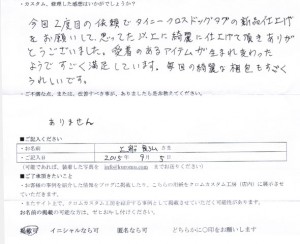 ・カスタム、修理した感想はいかがでしょうか？
今回2度目の依頼でタイニークロスドッグタグの新品仕上げ
をお願いして、思ってた以上に綺麗に仕上げて頂きありが
とうございました。愛着のあるアイテムが生まれ変わった
ようですごく満足しています。毎回の綺麗な梱包もすごく
うれしいです。
・ご不満な点、または、改善すべき事が、ありましたら是非お教えください。
ありません
■ご記入ください
・お名前 さま
・ご記入日 2015年 9月 5日
(可能であれば、装着した写真を までお送りください)
■ご了承頂きたいこと
・お客様の事例を紹介した情報をブログに掲載したり、こちらの用紙をクロムカスタム工房（店内）に展示させ
ていただきます。
・またサイト上で、クロムカスタム工房を紹介する事例として掲載させていただく可能性があります。
お名前の掲載の可能な方は、ぜひお力し付けください。
掲載可 イニシャルなら可 匿名なら可 どちらかに○印をお願いします